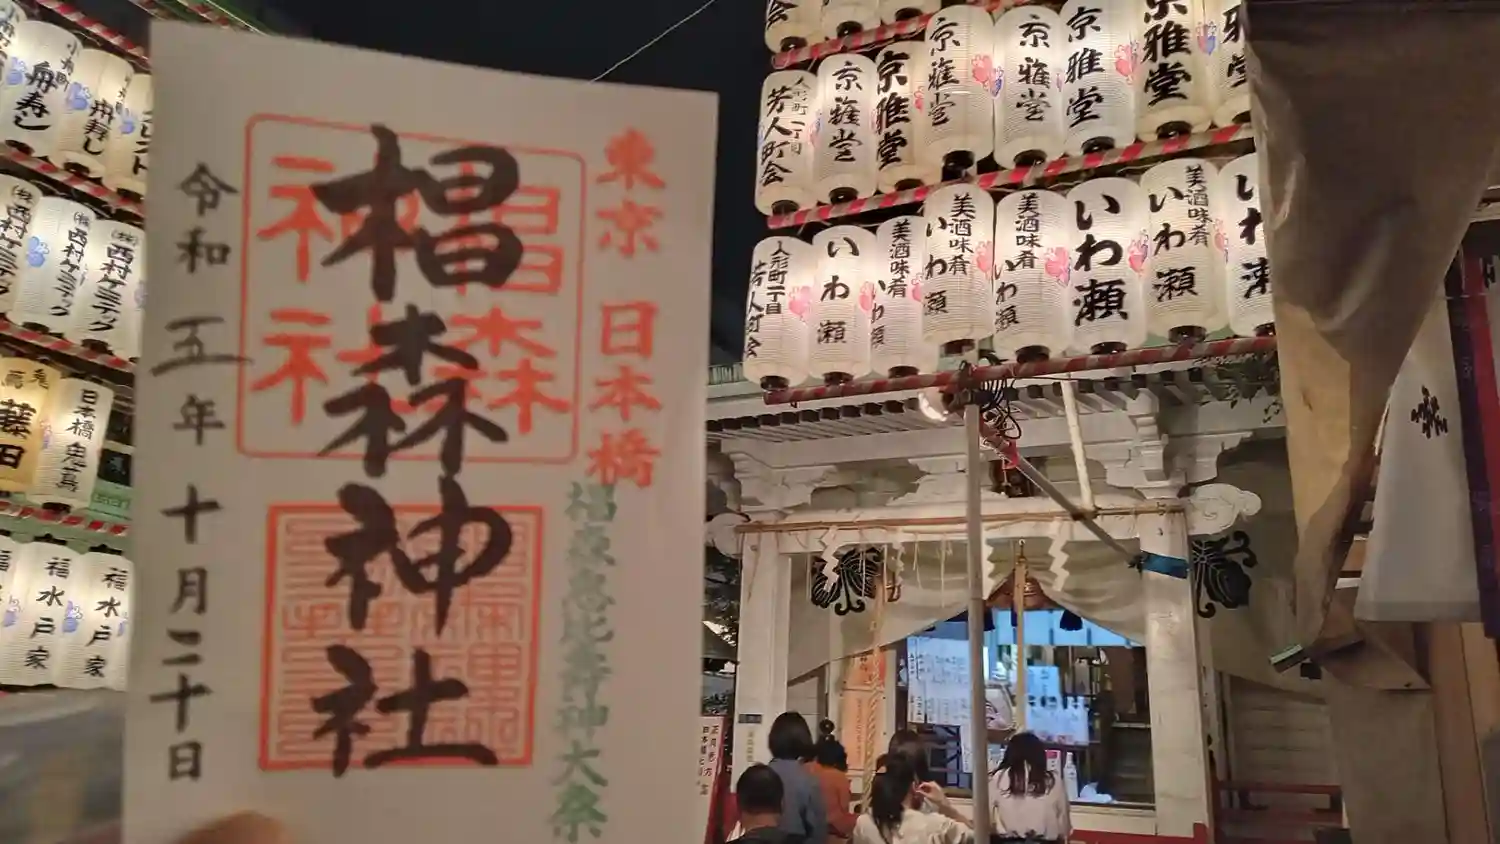 東京 日本橋
椙森恵比寿神大祭
椙森神社
椙森
神社
令和五年十月二十日
舟寿し
舟寿し
㈱西村ケミテック
㈱西村ケミテック
㈱西村ケミテック
藤田
日本橋兎蔦
福水戸家
福水戸家
京雅堂
京雅堂
京雅堂
京雅堂
京雅堂
京雅堂
人形町一丁目
芳人町会
美酒味肴
いわ瀬
美酒味肴
いわ瀬
美酒味肴
いわ瀬
いわ瀬
美酒味肴
いわ瀬
いわ瀬
人形町一丁目
芳人町会